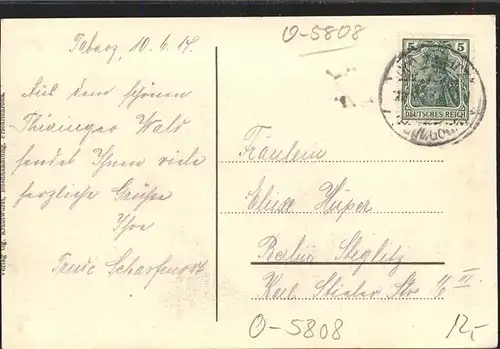 O-5808
Tabarz, 10.6.14.
Aus dem schönen
Thüringer Wald
sendet Ihnen viele
herzliche Grüße
Ihre
Trude Scharfenort
5
DEUTSCHES REICH
Fräulein
Elise Hüper
Berlin Steglitz
Karl Stieler Str
III.
O-5808
12,-